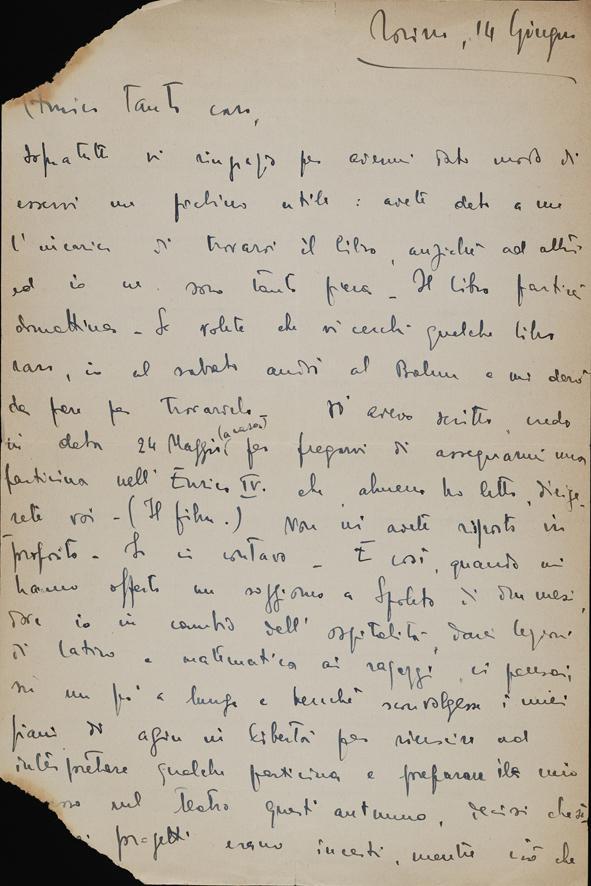 Torino, 14 Giugno
Amico tanto caro,
Sopratutto vi ringrazio per avermi dato modo di
esservi un pochino utile: avete dato a me
l'incarico di trovarvi il libro, anziché ad altri
ed io ne sono tanto fiera - Il libro partirà
domattina - Se volete che vi cerchi qualche libro
raro, io al sabato andrò al Balun e mi darò
da fare per trovarvelo Vi avevo scritto, credo
in data 24 Maggio (a casa) per pregarvi di assegnarmi una
particina nell'Enrico IV. che, almeno ho letto, dirige-
rete voi - (Il film.) Non mi avete risposto in
proposito - Io ci contavo - E così, quando mi
hanno offerto un soggiorno a Spoleto di due mesi,
dove io in cambio dell'ospitalità, darei lezioni
di latino e matematica ai ragazzi, ci pensai
su un po' a lungo e benché sconvolgesse i miei
piani di agire in libertà per riuscire ad
interpretare qualche particina e preparare il mio
nel Teatro questo autunno, decisi che
progetti erano incerti, mentre ciò che